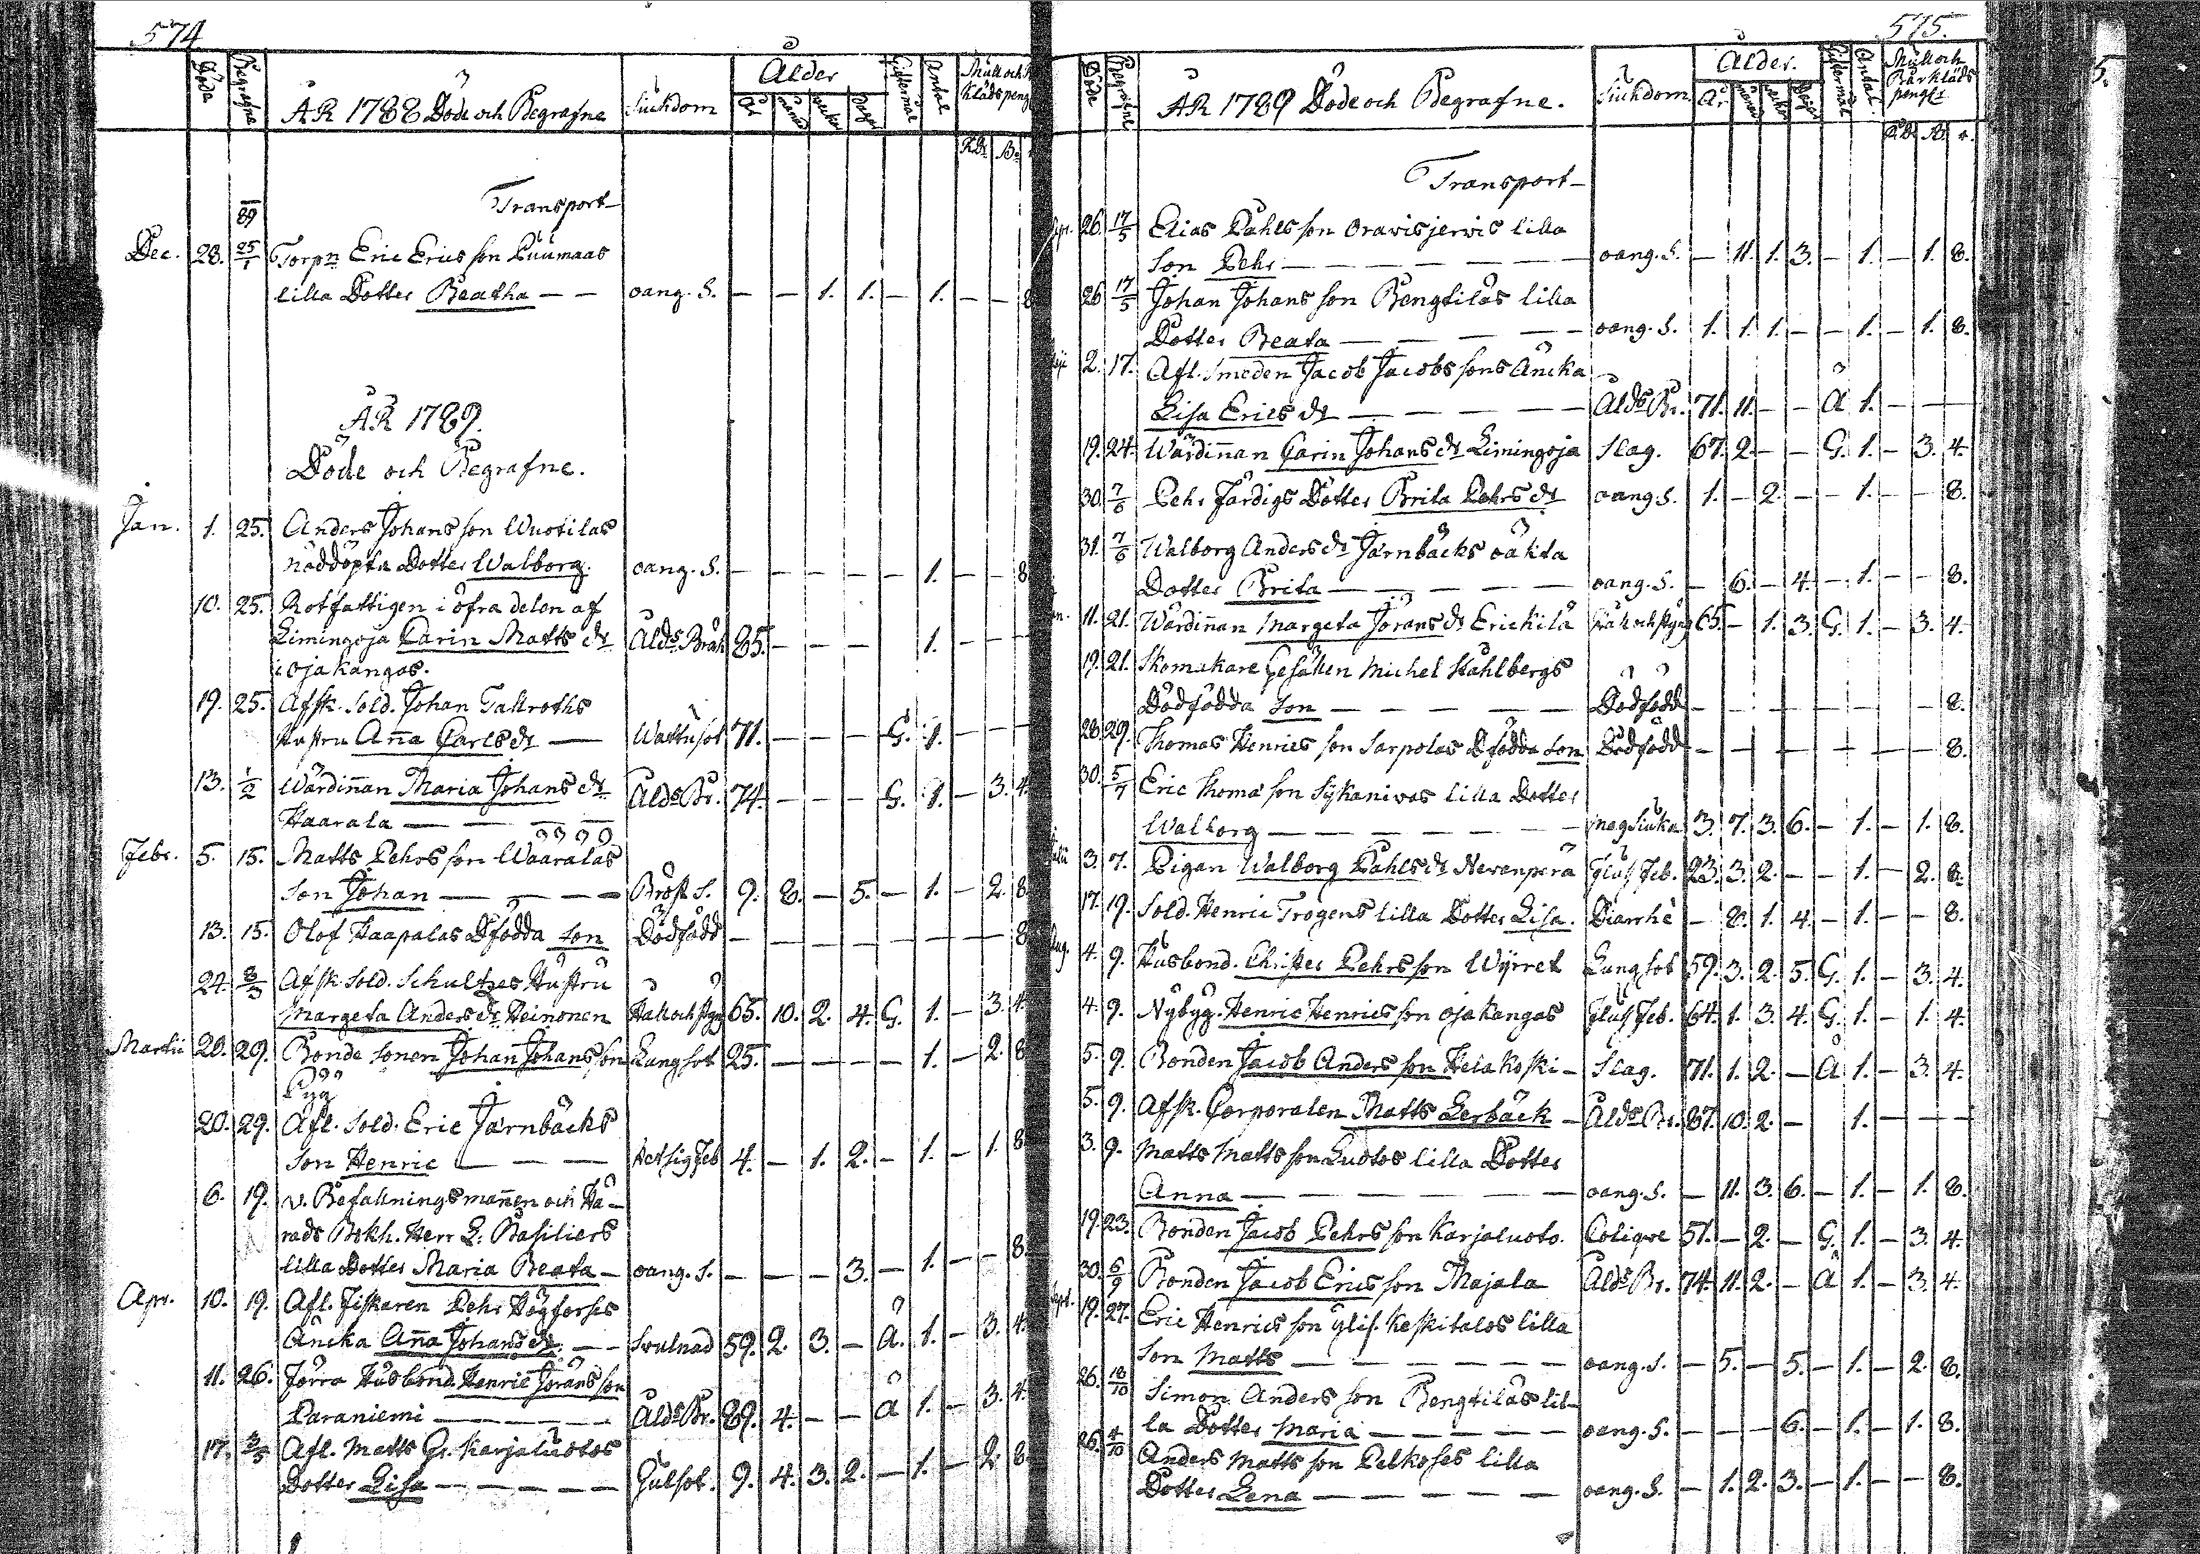 574
Döde Begrafne ÅR 1788 Döde och Begrafne Siuckdom Ålder Giftermål Antal Mull och
Klädspeng
År månad veckor Dagar
RD. B.
Transport
89
Dec. 28. 25/1 Torpn Eric Erics son Puumaas
lilla Dotter Beatha — — oang. S. — — 1. 1. — 1. — — 8
ÅR 1789.
Döde och Begrafne.
Jan. 1. 25. Anders Johans son Wuotilas
nöddöpta Dotter Walborg. oang. S. — — — — — 1. — — 8
10. 25. Rotfattigen i öfra delen af
Limingoja Carin Matts dr Ålds Bräk 85. — — — 1. — —
i ojakangas.
19. 25. Afsk. Sold. Johan Tallroths
Hustru Aña Carls dr — Wattusot 71. — — — G. 1. — — —
13. 1/2 Wärdiñan Maria Johans dr Ålds Br. 74. — — — G. 1. — 3. 4.
Haarala — — — —
Febr. 5. 15. Matts Pehrs son Wääräläs
Son Johan — — — — Bröst S. 9. 8. — 5. — 1. — 2. 8
13. 15. Olof Haapalas Dfödda Son Dödfödd — — — — — — — — 8
24. 8/3 Afsk. Sold. Schultzes Hustru
Margeta Anders dr Heinonen Håll och styng 65. 10. 2. 4. G. 1. — 3. 4.
Martii 20. 29. Bonde Sonen Johan Johans son Lungsot 25. — — — — 1. — 2. 8
Pÿÿ
20. 29. Afl. Sold. Eric Järnbäcks
Son Henric — — — Hetsig Feb 4. — 1. 2. — 1. — 1. 8
6. 19. v. Befallningsmañen och Hä-
rads Bokh. Herr L. Basiliers
lilla Dotter Maria Beata — oang. S. — — — 3. — 1. — — 8
Apr. 10. 19. Afl. Fiskaren Pehr Högforses
Äncka Aña Johans dr — — Svulnad 59. 2. 3. — Ä. 1. — 3. 4.
11. 26. Förra Husbond. Henric Jörans son
Paraniemi — — — — — Ålds Br. 89. 4. — — Ä 1. — 3. 4.
17. 3/5 Afl. Matts Gr. Karjaluotos
Dotter Lisa — — — — — Gulsot. 9. 4. 3. 2. — 1. — 2. 8
575.
Döde Begrafne ÅR 1789 Döde och Begrafne. Siuckdom. Ålder. Giftermål Antal. Mull och
Bårkläds
penger
År månad veckor Dagar
RD. B.
Transport —
Apr. 26. 17/5 Elias Påhls son Oravisjervis lilla
Son Pehr — — — — — — — oang. S. — 11. 1. 3. — 1. — 1. 8.
26. 17/5 Johan Johans son Bengtiläs lilla
Dotter Beata — — — — — oang. S. 1. 1. 1. — — 1. — 1. 8.
2. 17. Afl. Smeden Jacob Jacobs sons Äncka
Lisa Erics dr — — — — — Ålds Br. 71. 11. — — Ä 1. — — —
19. 24. Wärdiñan Carin Johans dr Limingoja Slag. 67. 2. — — G. 1. — 3. 4.
30. 7/6 Pehr Färdigs Dotter Brita Pehrs dr oang. S. 1. — 2. — — 1. — — 8.
31. 7/6 Walborg Anders dr Järnbäcks oäkta
Dotter Brita — — — — — oang. S. — 6. — 4. — 1. — — 8.
11. 21. Wärdiñan Margeta Jörans dr Erickilä Håll och styng 65. — 1. 3. G. 1. — 3. 4.
19. 21. Skomakare Gesällen Michel Ståhlbergs
Dödfödda Son — — — — — Dödfödd — — — — — — — — 8.
28. 29. Thomas Henrics son Sarpolas Dfödda Son Dödfödd — — — — — — — — 8.
30. 5/7 Eric Thomæ son Sÿkanivas lilla Dotter
Walborg — — — — — — magsiuka 3. 7. 3. 6. — 1. — 1. 8.
3. 7. Pigan Walborg Påhls dr Nevenperä Fluss Feb. 23. 3. 2. — — 1. — 2. 8.
17. 19. Sold. Henric Trogens lilla Dotter Lisa. Diarrhè — 8. 1. 4. — 1. — — 8.
Aug. 4. 9. Husbond. Christer Pehrs son Wÿrret Lungsot 59. 3. 2. 5. G. 1. — 3. 4.
4. 9. Nÿbÿg. Henric Henrics son ojakangas Fluss Feb. 64. 1. 3. 4. G. 1. — 1. 4.
5. 9. Bonden Jacob Anders son Helakoski — Slag. 71. 1. 2. — Ä 1. — 3. 4.
5. 9. Afsk. Corporalen Matts Lerbäck — Ålds Br. 87. 10. 2. — 1. — — —
3. 9. Matts Matts son Luotos lilla Dotter
Anna — — — — — — — oang. S. — 11. 3. 6. — 1. — 1. 8.
19. 23. Bonden Jacob Pehrs son Karjaluoto. Colique 51. — 2. — G. 1. — 3. 4.
30. 6/9 Bonden Jacob Erics son Majala Ålds Br. 74. 11. 2. — Ä 1. — 3. 4.
Sept. 19. 27. Eric Henrics son ÿlis. Keskitalos lilla
Son Matts — — — — — — oang. S. — 5. — 5. — 1. — 2. 8.
26. 18/10 Simon Anders son Bengtiläs lil-
la Dotter Maria — — — — — oang. S. — — — 6. — 1. — 1. 8.
26. 4/10 Anders Matts son Pelkoses lilla
Dotter Lena — — — — — — oang. S. — 1. 2. 3. — 1. — — 8.